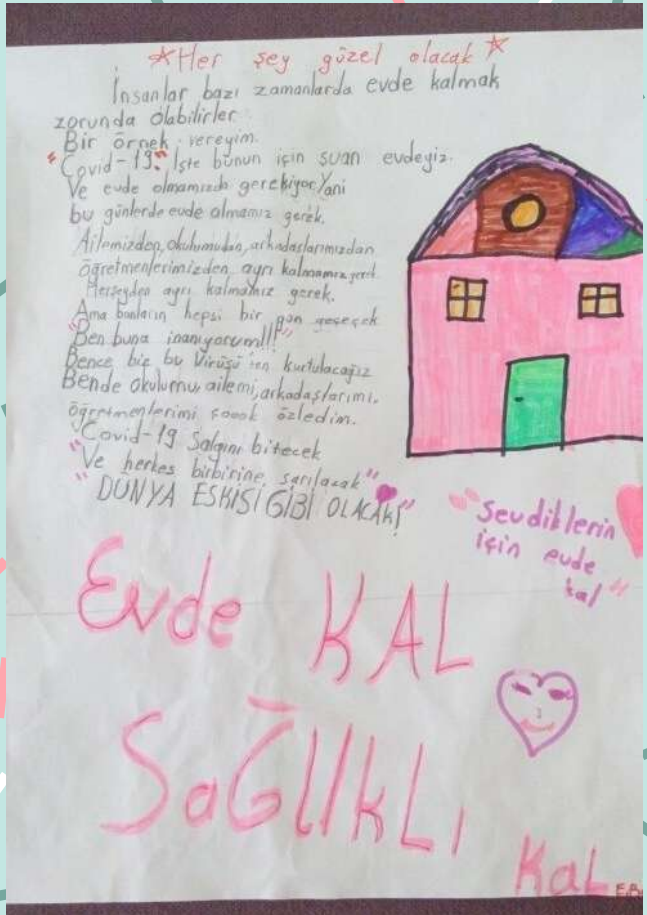 *Her şey güzel olacak*
İnsanlar bazı zamanlarda evde kalmak
zorunda olabilirler
Bir örnek vereyim.
"Covid-19" İşte bunun için şuan evdeyiz.
Ve evde olmamızda gerekiyor. Yani
bu günlerde evde olmamız gerek.
Ailemizden, okulumudan, arkadaşlarımızdan
öğretmenlerimizden ayrı kalmamız gerek.
Herşeyden ayrı kalmamız gerek.
Ama bonların hepsi bir gün geçeçek
"Ben buna inanıyorum!!!"
Bence biz bu Virüsü'ten kurtulacağız
Bende okulumu, ailemi, arkadaşlarımı,
öğretmenlerimi çoook özledim.
"Covid-19 Salgını bitecek
"Ve herkes birbirine sarılacak"
"DÜNYA ESKİSİ GİBİ OLACAK!"
"Sevdiklerin
için evde
kal"
Evde KAL
SaĞlIkLı
KaL